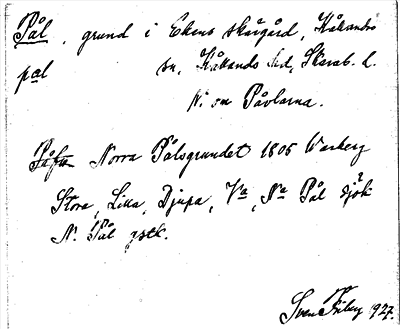 Pål, grund i Ekens skärgård, Kållands
pɑl sn, Kållands hd, Skarab. l.
N. om Påvlarna.
Norra Pålsgrundet 1805 Warberg
Stora, Lilla, Djupa, Va, Na Pål sjök
N. Pål gstk.
Sven Friberg 1927.